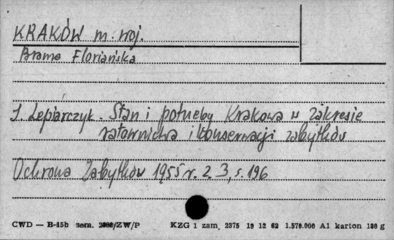 KRAKÓW m. woj.
Brama Floriańska
J. Lepiarczyk. Stan i potrzeby Krakowa w zakresie
ratownictwa i konserwacji zabytków
Ochrona Zabytków 1955 r. 2 3, s. 196
CWD — B-45b zam. /ZW/P KZG 1 zam. 2375 19 12 62 1.570.000 A1 karton 180 g